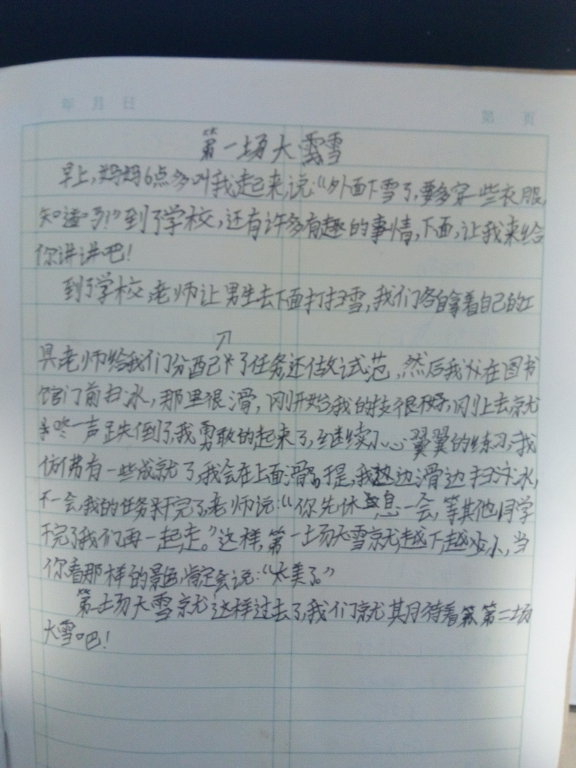 年 月 日
第 页
第一场大雪
早上,妈妈6点多叫我起来说:“外面下雪了,要多穿一些衣服,
知道了!”到了学校,还有许多有趣的事情,下面,让我来给
你讲讲吧!
到了学校,老师让男生去下面打扫雪,我们各自拿着自己的工
具老师给我们分配了任务还做试范,然后我从在图书
馆门前扫冰,那里很滑,刚开始我的技很好,刚上去就
咚一声跌倒了,我勇敢的起来了,继续小心翼翼的练习,我
有一些成就了,我会在上面滑。于是,我边滑边扫冰,
不一会,我的任务干完了,老师说:“你先休息一会,等其他同学
干完了我们再一起走。”这样,第一场大雪就越下越小,当
你看那样的景色,肯定会说:“太美了。”
第一场大雪就这样过去了,我们就期待着第二场
大雪吧!